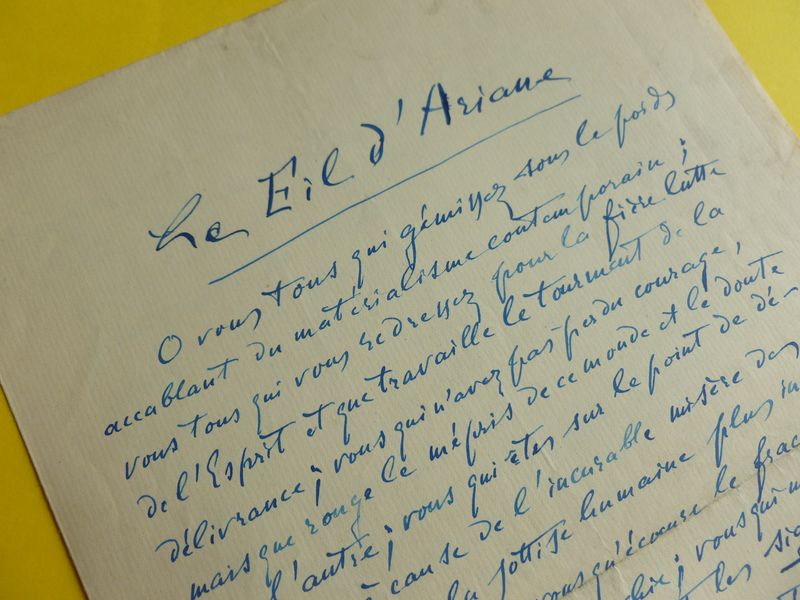 Le Fil d'Ariane
O vous tous qui gémissez sous le poids
accablant du matérialisme contemporain ;
vous tous qui vous redressez pour la fière lutte
de l'Esprit et que travaille le tourment de la
délivrance ; vous qui n'avez pas perdu courage,
mais que ronge le mépris de ce monde et le doute
l'autre ; vous qui êtes sur le point de dé-
à cause de l'incurable misère des
la sottise humaine plus in
vous qu'écoeure le frac
vous qui n
les